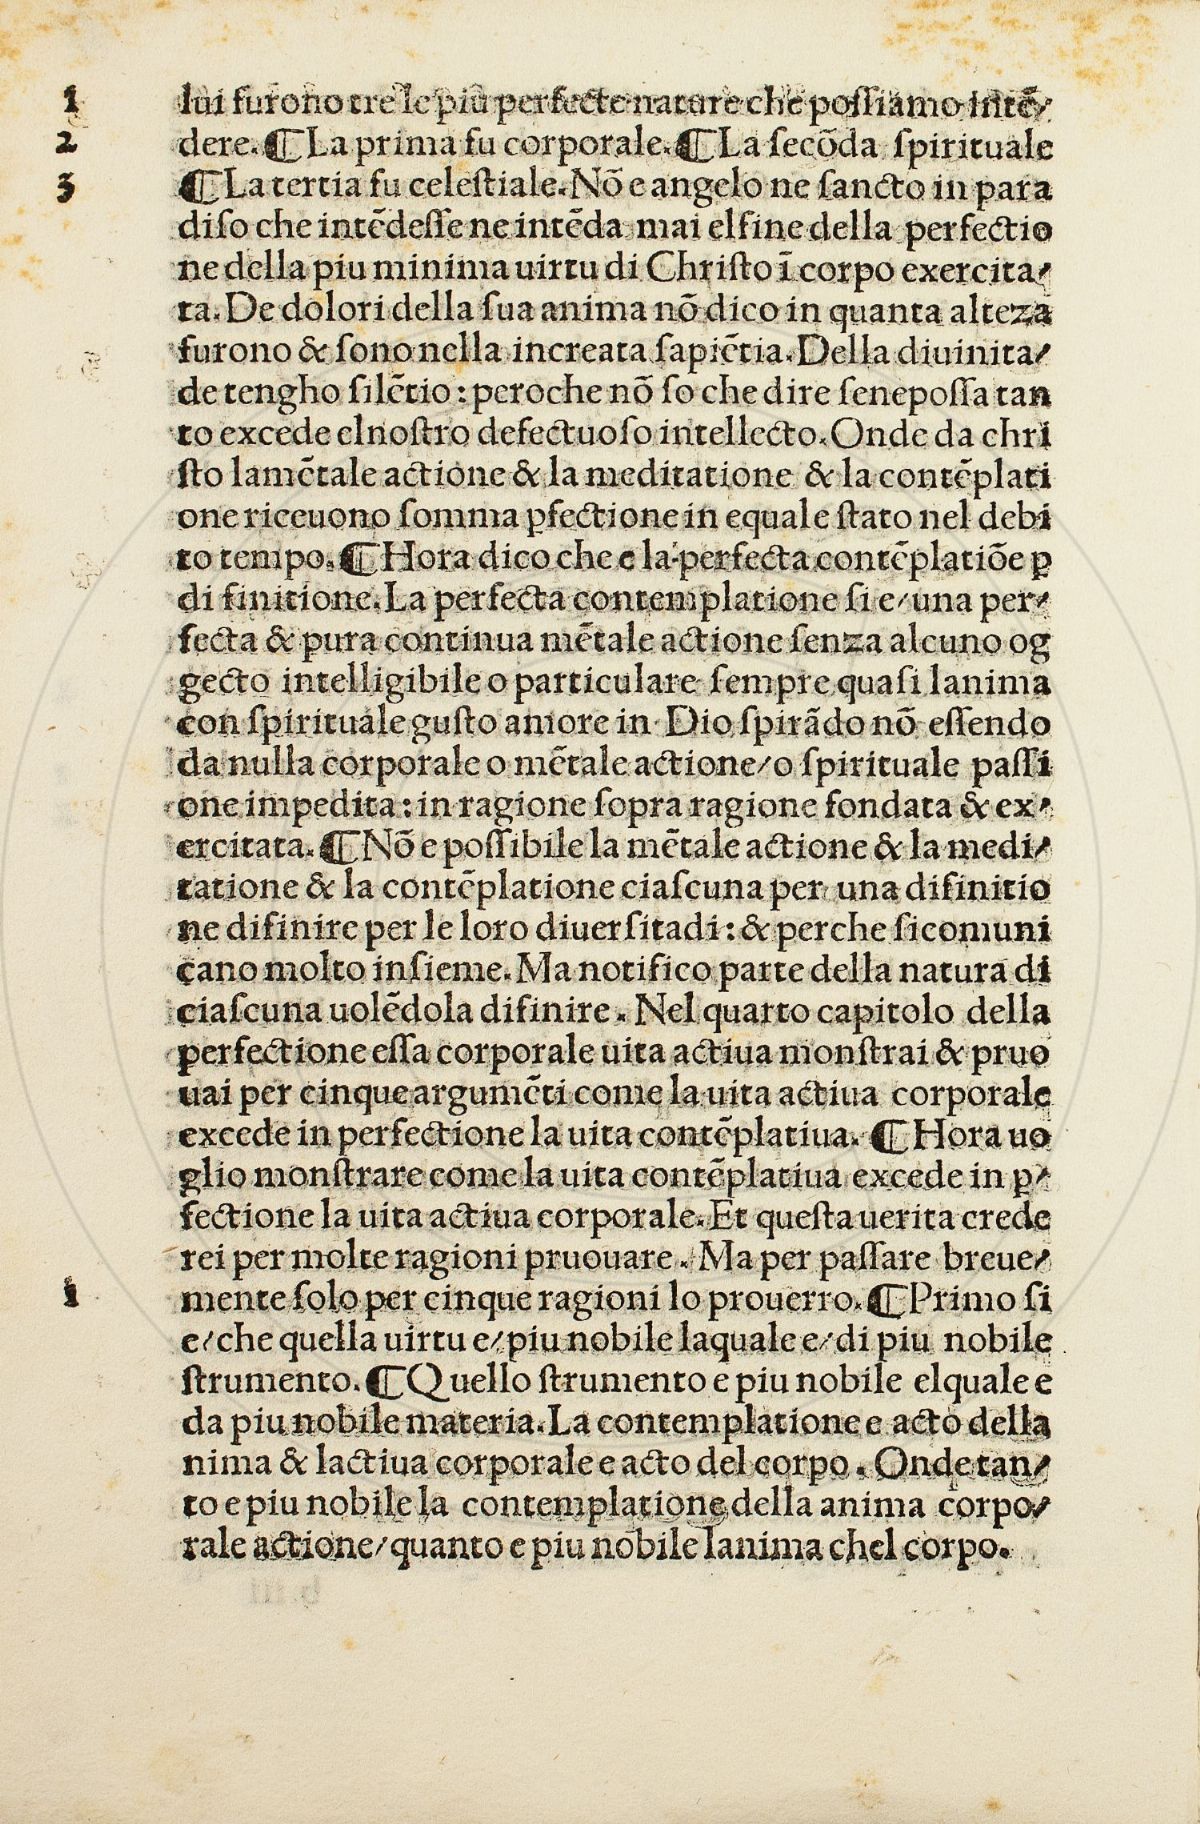 1 lui furono tre le piu perfecte nature che poſſiamo intē/
2 dere. ¶ La prima fu corporale. ¶ La ſecōda ſpirituale
3 ¶ La tertia fu celeſtiale. Nō e angelo ne ſancto in para
diſo che intēdeſſe ne intēda mai elfine della perfectio
ne della piu minima uirtu di Chriſto ī corpo exercita/
ta. De dolori della ſua anima nō dico in quanta alteza
furono & ſono nella increata ſapiētia. Della diuinita/
de tengho ſilētio : peroche nō ſo che dire ſenepoſſa tan
to excede elnoſtro defectuoſo intellecto. Onde da chri
ſto lamētale actione & la meditatione & la contēplati
one riceuono ſomma ꝑfectione in equale ſtato nel debi
to tempo. ¶ Hora dico che e la perfecta contēplatiōe ꝑ
di finitione. La perfecta contemplatione ſi e/ una per/
fecta & pura continua mētale actione ſenza alcuno og
gecto intelligibile o particulare ſempre quaſi lanima
con ſpirituale guſto amore in Dio ſpirādo nō eſſendo
da nulla corporale o mētale actione/o ſpirituale paſſi
one impedita : in ragione ſopra ragione fondata & ex/
ercitata. ¶ Nō e poſſibile la mētale actione & la medi/
tatione & la contēplatione ciaſcuna per una difinitio
ne difinire per le loro diuerſitadi : & perche ſicomuni
cano molto inſieme. Ma notifico parte della natura di
ciaſcuna uolēdola difinire . Nel quarto capitolo della
perfectione eſſa corporale uita actiua monſtrai & pruo
uai per cinque argumēti come la uita actiua corporale
excede in perfectione la uita contēplatiua. ¶ Hora uo
glio monſtrare come la uita contēplatiua excede in ꝑ/
fectione la uita actiua corporale. Et queſta uerita crede
rei per molte ragioni pruouare . Ma per paſſare breue/
1 mente ſolo per cinque ragioni lo prouerro. ¶ Primo ſi
e/ che quella uirtu e/ piu nobile laquale e/ di piu nobile
ſtrumento. ¶ Quello ſtrumento e piu nobile elquale e
da piu nobile materia. La contemplatione e acto della
nima & lactiua corporale e acto del corpo . Onde tan/
to e piu nobile la contemplatione della anima corpo/
rale actione/ quanto e piu nobile lanima chel corpo.